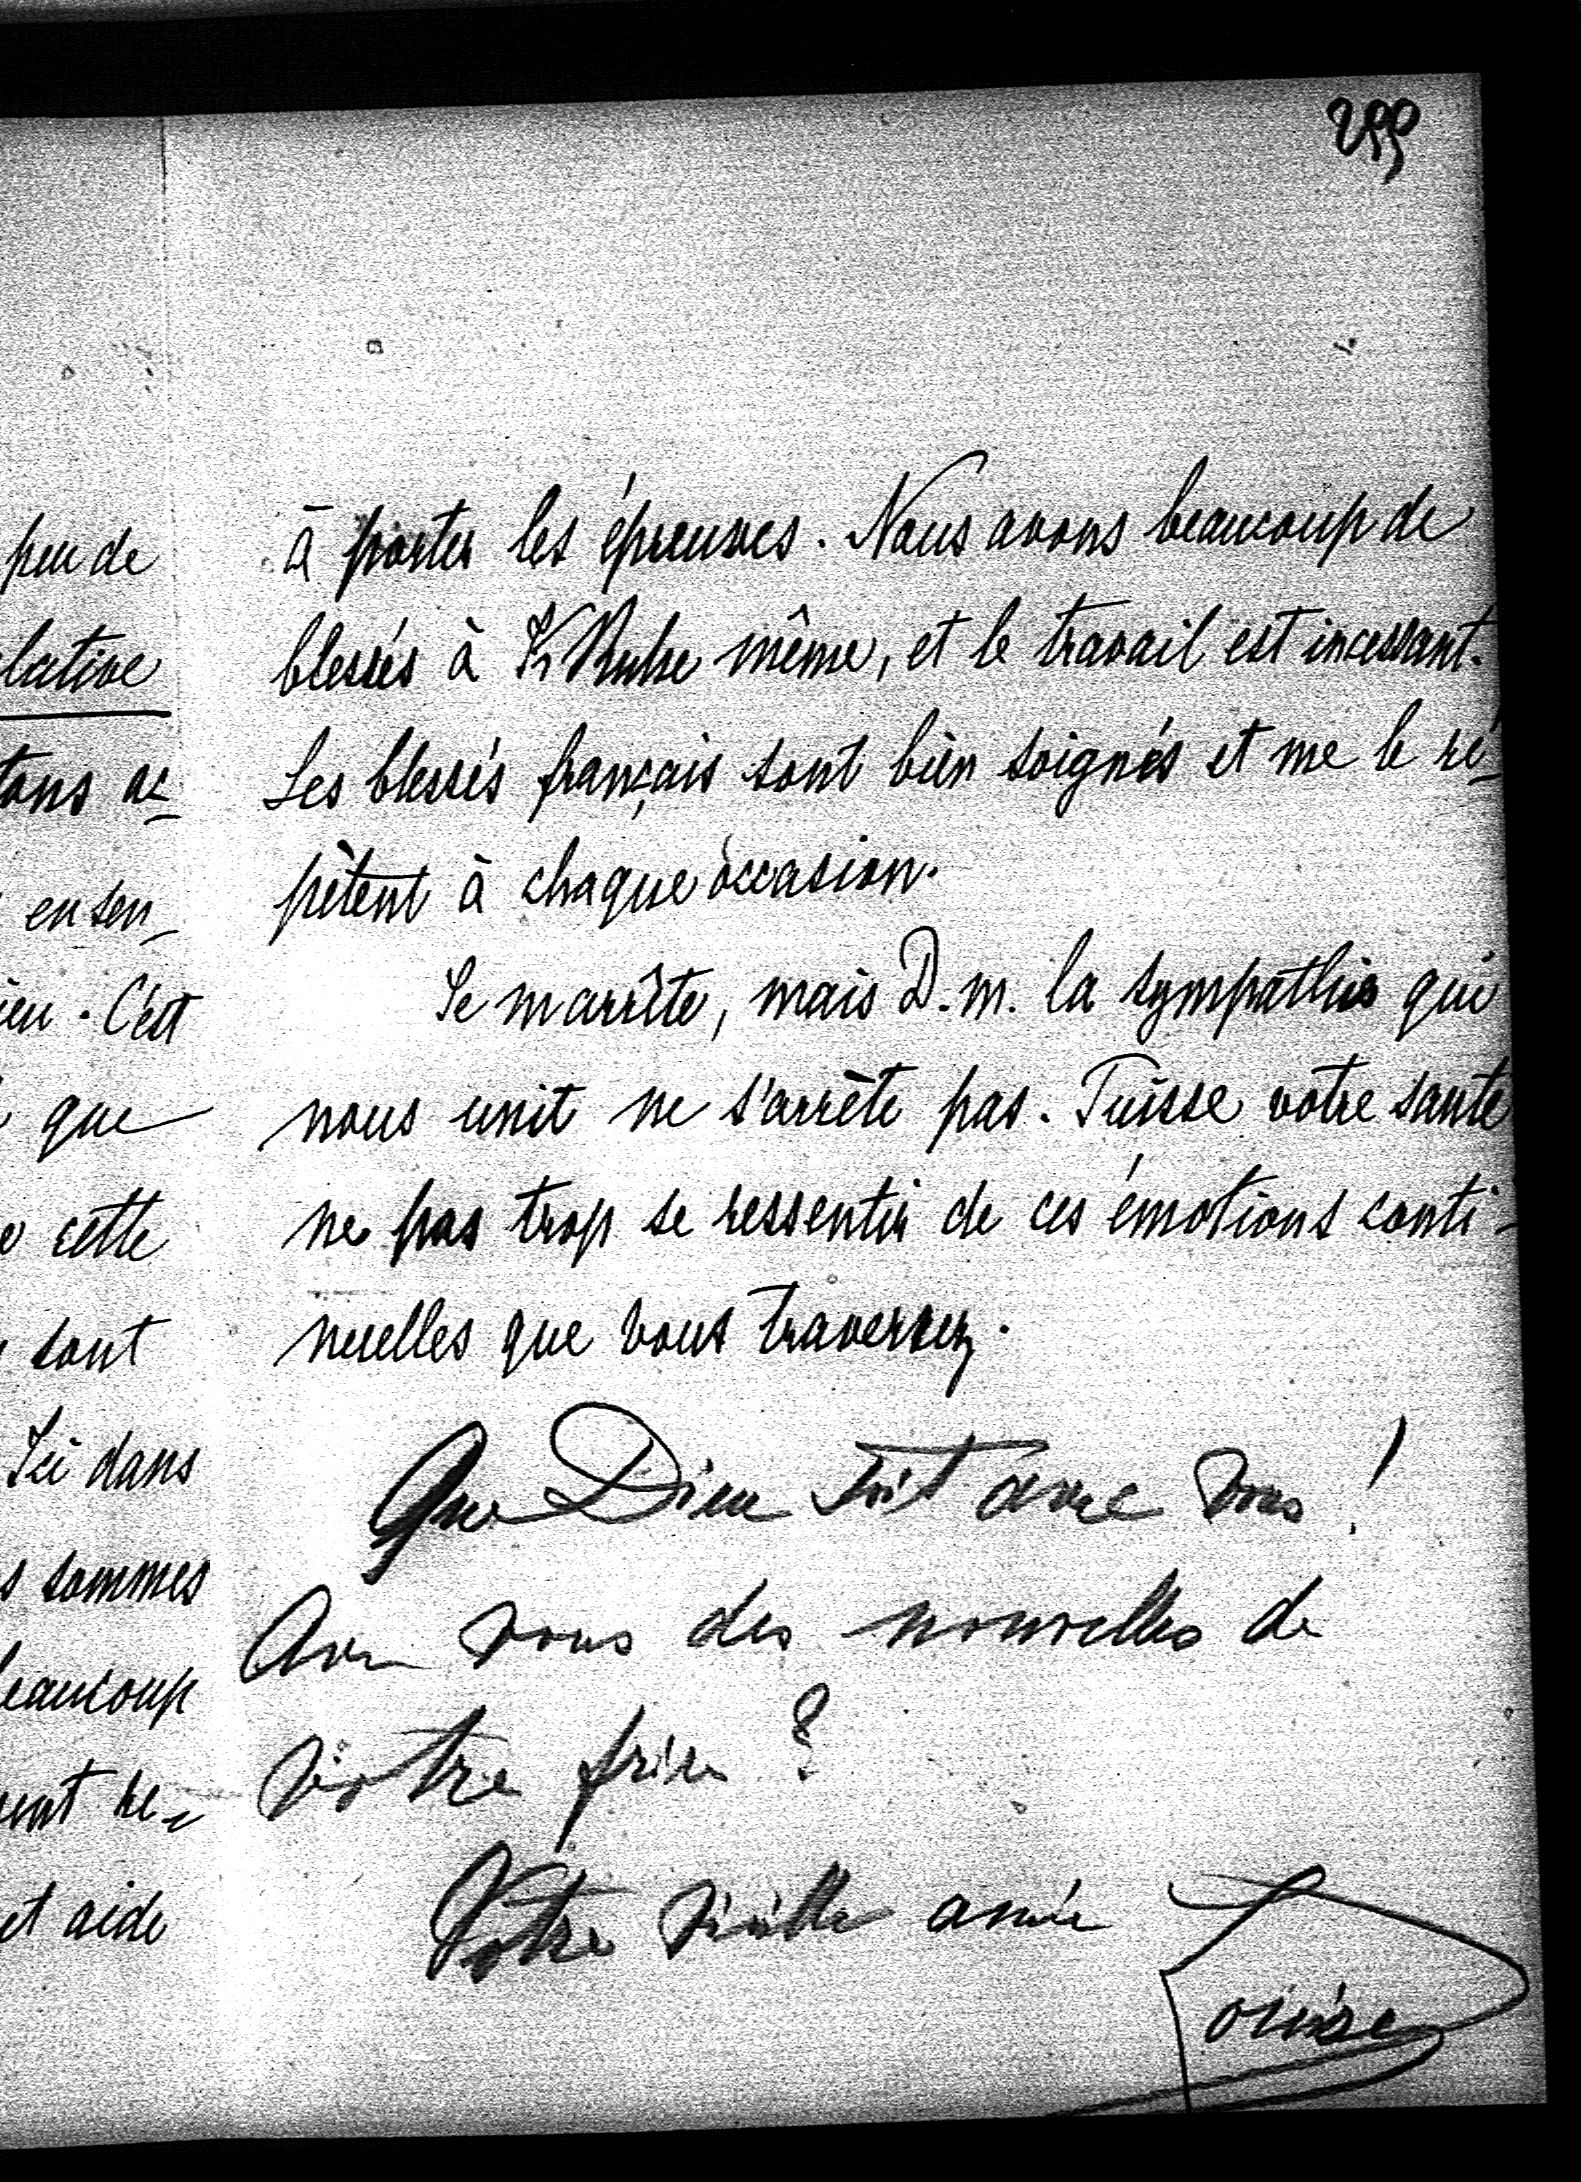 299
peu de
lative
tons ac-
en sen-
ieu. C'est
que
cette
sont
Ici dans
s sommes
beaucoup
ment re-
et aide
à porter les épreuves. Nous avons beaucoup de
blessés à KRuhe même, et le travail est incessant.
Les blessés français sont bien soignés et me le ré-
pètent à chaque occasion.
Je m'arrête, mais D.m. la sympathie qui
nous unit ne s'arrête pas. Puisse votre santé
ne pas trop se ressentir de ces émotions conti-
nuelles que vous traversez.
Que Dieu soit avec vous!
Avez vous des nouvelles de
Votre frère?
Votre vieille amie
Louise